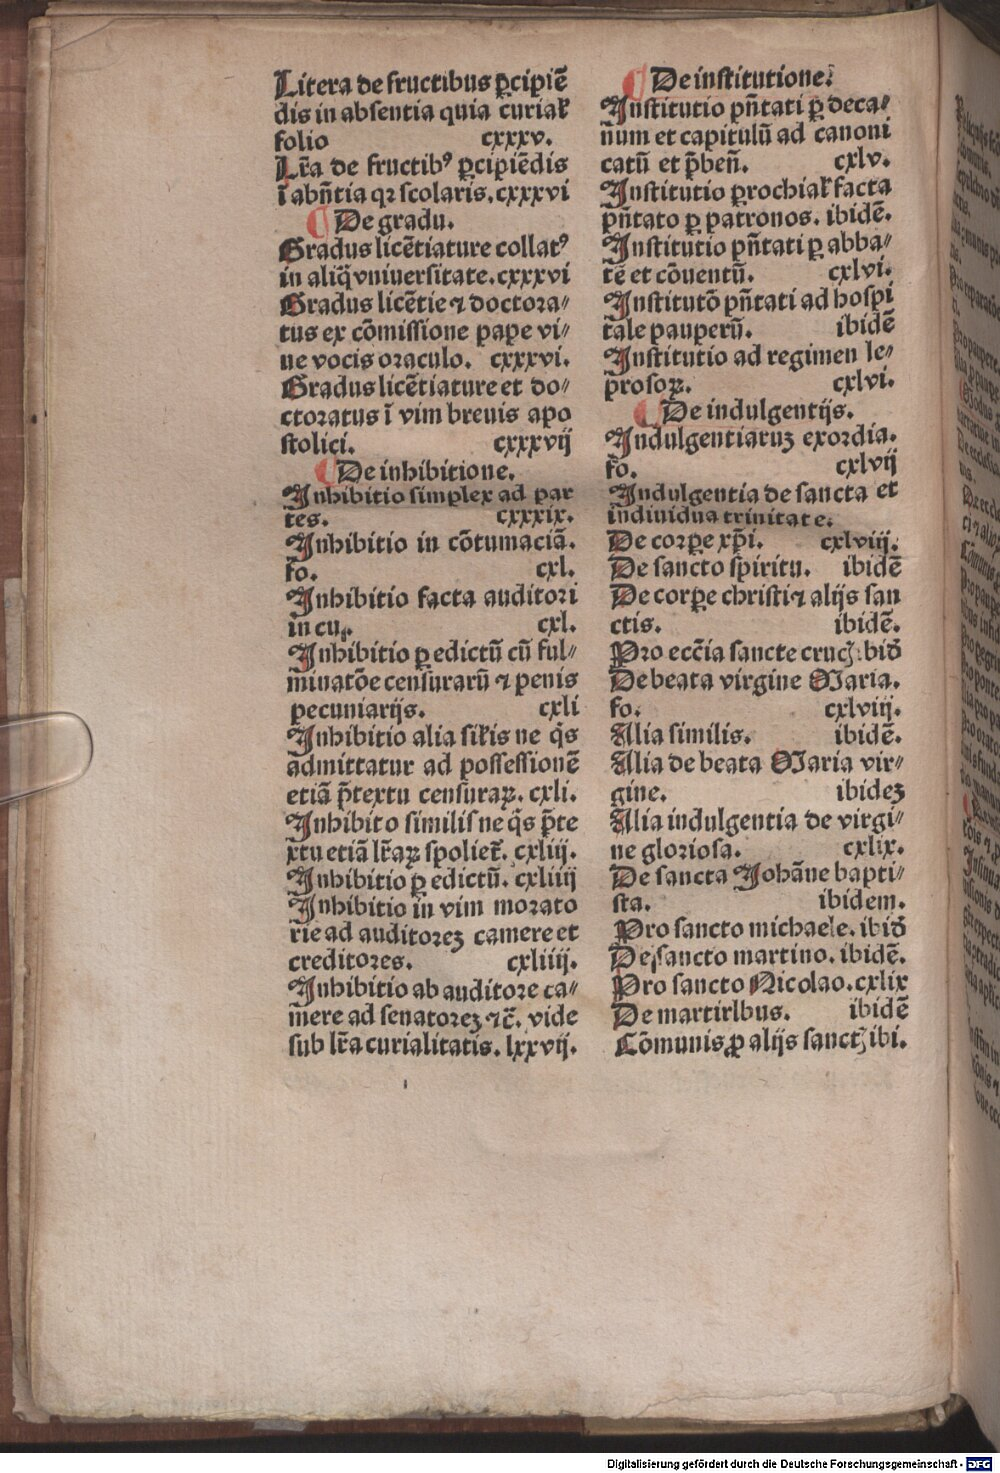 Litera de fructibus ꝑcipiẽ
dis in absentia quia curiaƚ
folio cxxxv.
Lr̃a de fructibꝰ ꝑcipiẽdis
ĩ abñtia qꝛ scolaris. cxxxvi
¶ De gradu.
Gradus licẽtiature collatꝰ
in aliq̃ vniuersitate. cxxxvi
Gradus licẽtie ⁊ doctora⸗
tus ex cõmissione pape vi⸗
ue vocis oraculo. cxxxvi.
Gradus licẽtiature et do⸗
ctoratus ĩ vim breuis apo
stolici. cxxxvij
¶ De inhibitione.
Inhibitio simplex ad par
tes. cxxxix.
Inhibitio in cõtumaciã.
fo. cxl.
Inhibitio facta auditori
in cu. cxl.
Inhibitio ꝑ edictũ cũ ful⸗
minatõe censurarũ ⁊ penis
pecuniarijs. cxli
Inhibitio alia siƚis ne q̃s
admittatur ad possessionẽ
etiã p̃textu censuraꝝ. cxli.
Inhibito similis ne q̃s p̃te
xtu etiã lr̃aꝝ spoliet̃. cxliij.
Inhibitio ꝑ edictũ. cxliiij
Inhibitio in vim morato
rie ad auditoreꝫ camere et
creditores. cxliiij.
Inhibitio ab auditore ca⸗
mere ad senatoreꝫ ⁊c̃. vide
sub lr̃a curialitatis. lxxvij.
¶ De institutione.
Institutio pñtati ꝑ deca⸗
num et capitulũ ad canoni
catũ et p̃beñ. cxlv.
Institutio ꝑrochiaƚ facta
pñtato ꝑ patronos. ibidẽ.
Institutio pñtati ꝑ abba⸗
tẽ et cõuentũ. cxlvi.
Institutõ pñtati ad hospi
tale pauperũ. ibidẽ
Institutio ad regimen le⸗
prosoꝝ. cxlvi.
¶ De indulgentijs.
Indulgentiaruꝫ exordia.
fo. cxlvij
Indulgentia de sancta et
indiuidua trinitate.
De corꝑe xp̃i. cxlviij.
De sancto spiritu. ibidẽ
De corꝑe christi ⁊ alijs san
ctis. ibidẽ.
Pro ecc̃ia sancte crucꝭ. bid̃
De beata virgine Maria.
fo. cxlviij.
Alia similis. ibidẽ.
Alia de beata Maria vir⸗
gine. ibideꝫ
Alia indulgentia de virgi⸗
ne gloriosa. cxlix.
De sancta Johãne bapti⸗
sta. ibidem.
Pro sancto michaele. ibid̃
De sancto martino. ibidẽ.
Pro sancto Nicolao. cxlix
De martirlbus. ibidẽ
Cõmunis ꝓ alijs sanctꝭ ibi.
Digitalisierung gefördert durch die Deutsche Forschungsgemeinschaft - DFG